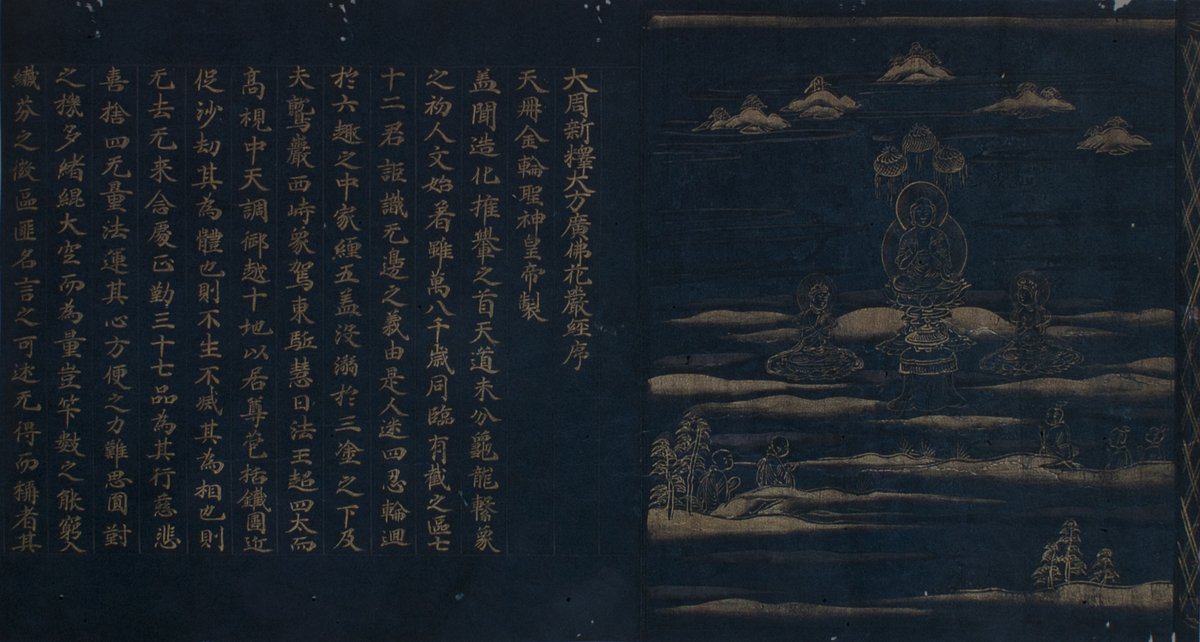 大周新釋大方廣佛花嚴經序
天冊金輪聖神皇帝製
盖聞造化推轝之首天道未分龜龍繫象
之初人文始著雖萬八千歲同臨有截之區七
十二君詎識无邊之義由是人迷四忍輪迴
於六趣之中家纏五盖没溺於三塗之下及
夫鷲巖西峙象駕東駈慧日法王超四太而
高視中天調御越十地以居尊苞括鐵圍近
促沙劫其為體也則不生不滅其為相也則
无去无來念處正勤三十七品為其行慈悲
喜捨四无量法運其心方便之力難思圓對
之機多緒緄大空而為量豈竿數之能窮入
纎芥之微區匪名言之可述无得而稱者其